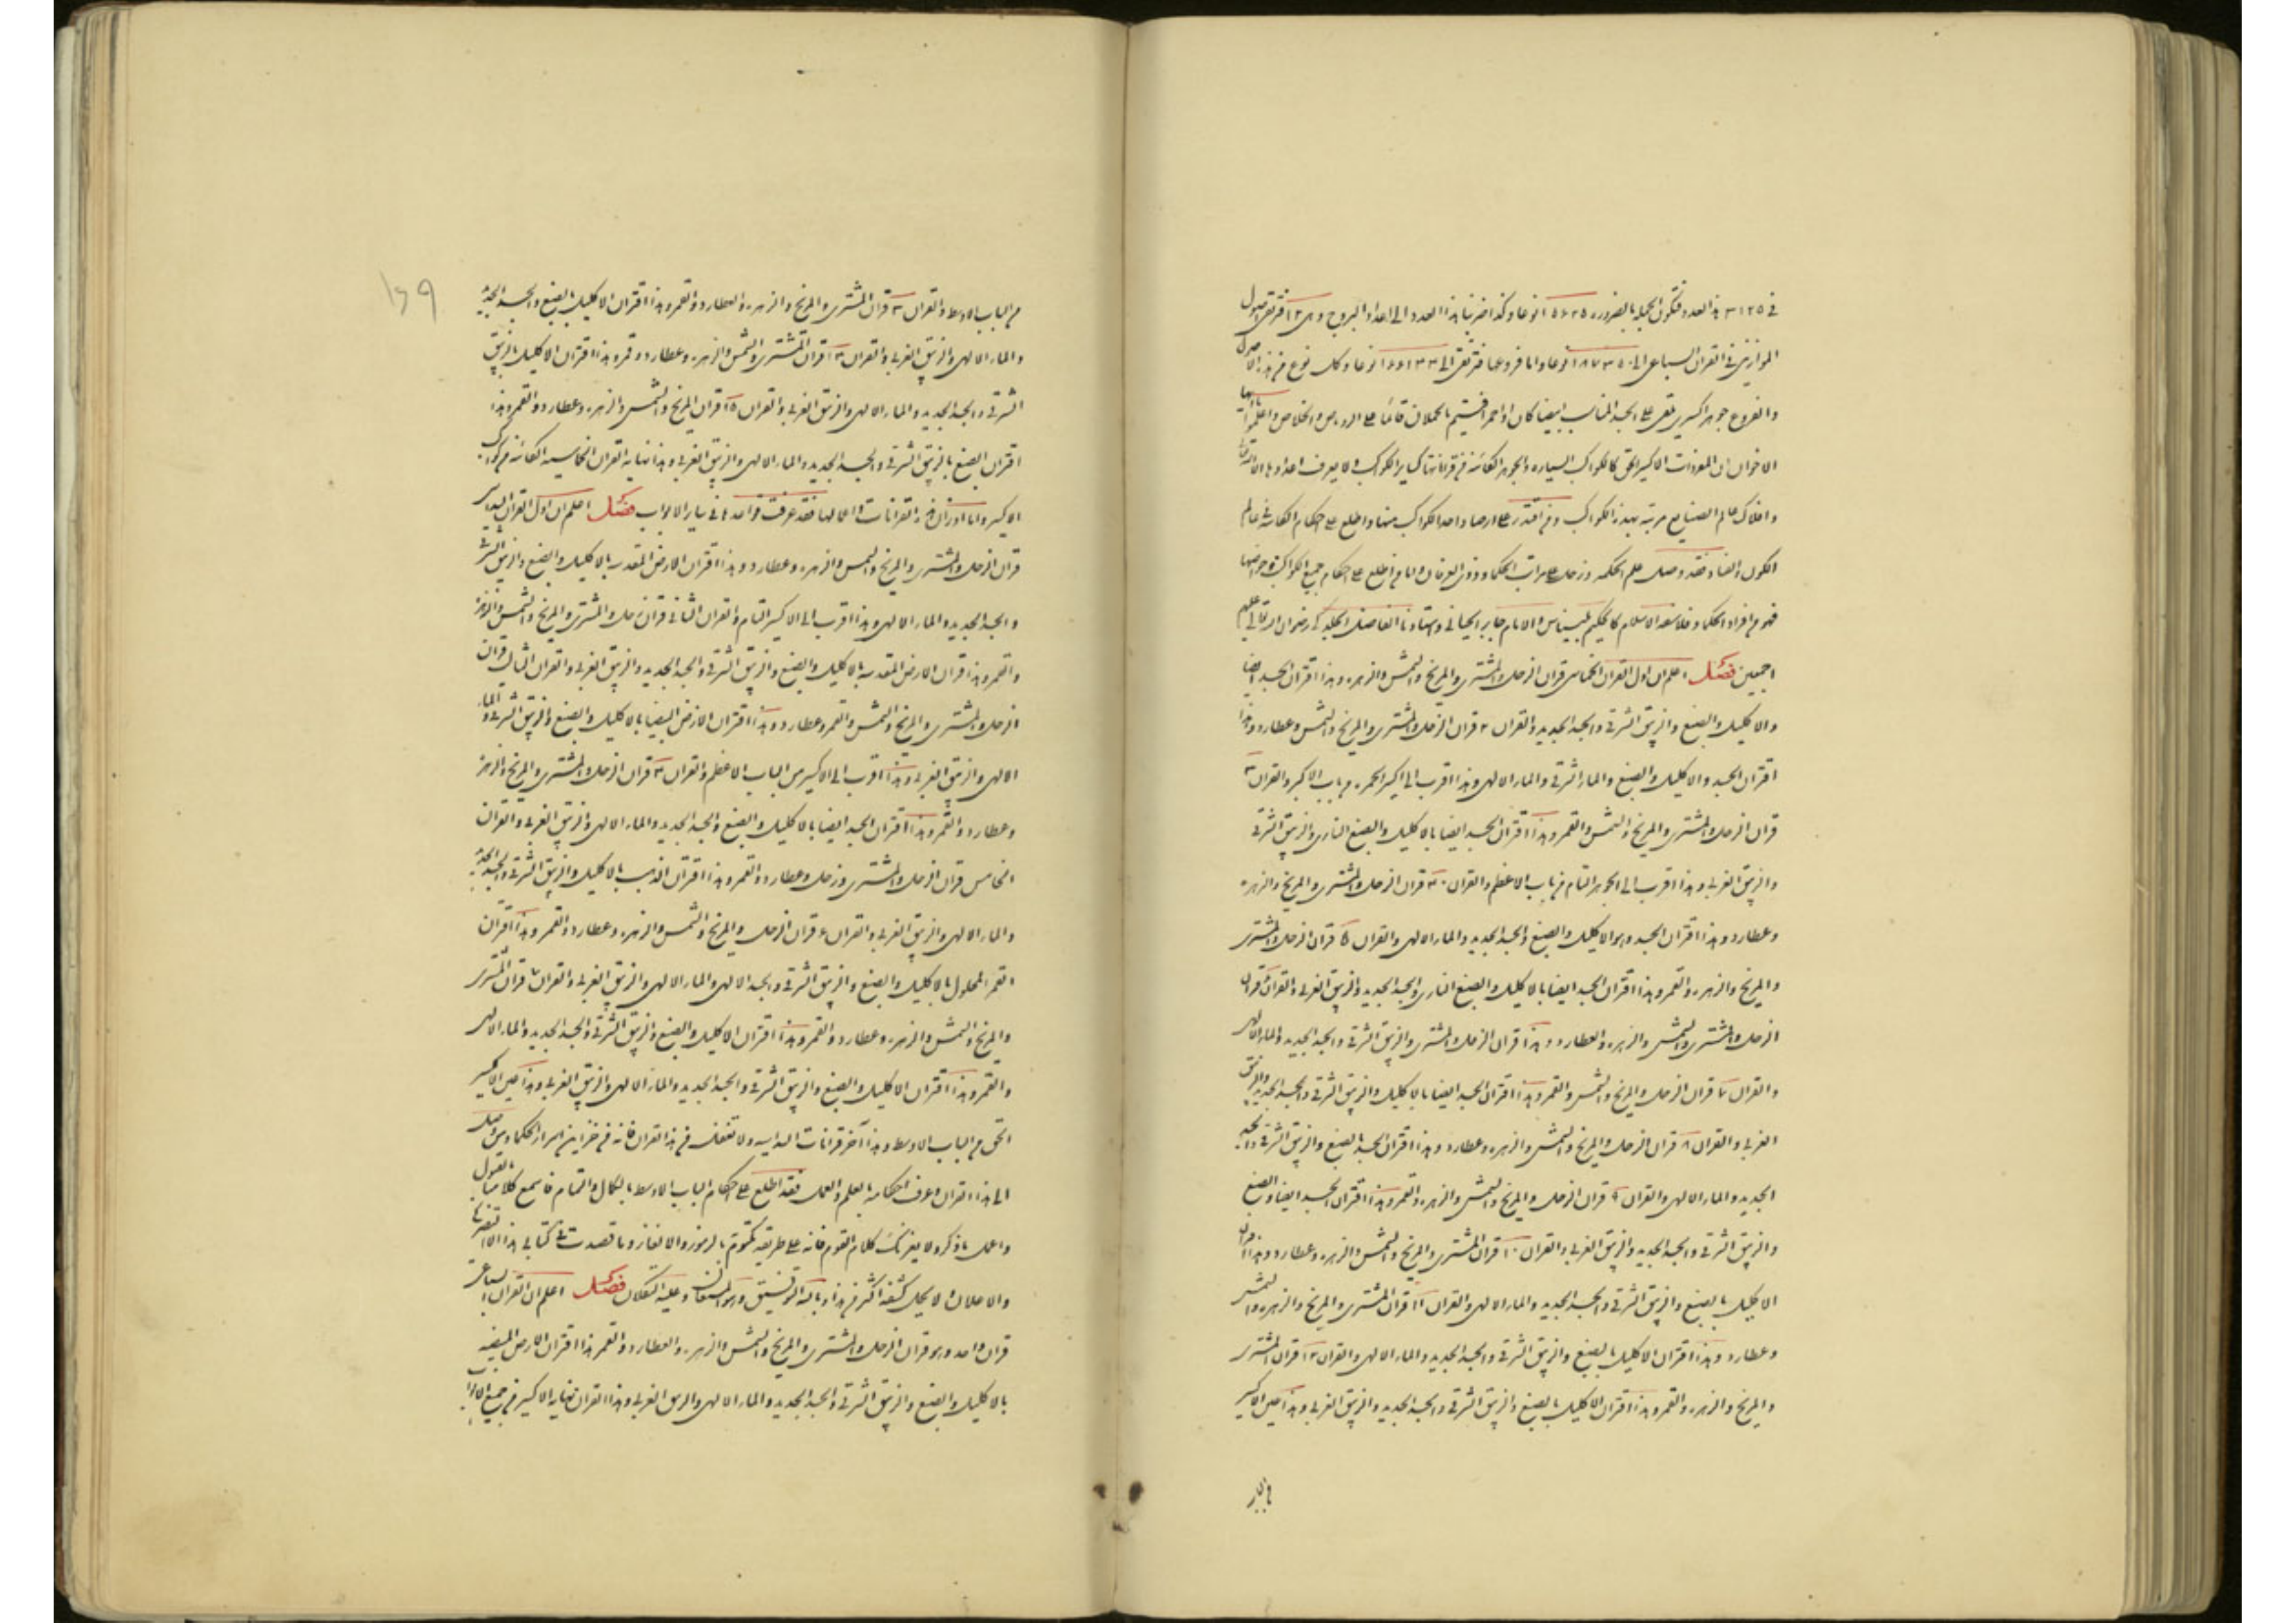 في ٣١٢٥ هذا العدد فتكون الجملة بالضرورة ١٥٦٢٥ نوعا وكذا ضربنا هذا العدد الى اعداد البروج وهي ١٢ اصول
الموازين في القران السباعي الى ١٨٧٣٥٠ نوعا واما فروعها فترتقي الى نوعا وكل نوع من هذه الاصول
والفروع جوهر اكسيري يلقى على الجسد المناسب ابيضا كان او احمر قائما على الروباص والخلاص واعلموا ايها
الاخوان ان المفردات الاكسير الحق كالكواكب السيارة والجوهر الكائنة من قراناتها كساير الكواكب ولا يعرف اعدادها الا الله تعالى
وافلاك عالم الصنايع مرتبة بهذه الكواكب ومن اقتدر على ارصاد احد الكواكب منها واطلع على احكام الكائنة في عالم
الكون والفساد فقد وصل علم الحكمة ودخل على مراتب الحكماء وذوي العرفان واما من اطلع على احكام جميع الكواكب وخواصها
فهو من افراد الحكماء وفلاسفة الاسلام كالحكيم بليناس والامام جابر الحياني واستادنا الفاضل الجلدكي رضوان الله تعالى عليهم
اجمعين فصل اعلم ان اول القران الخماسي قران الزحل والمشتري والمريخ والشمس والزهرة وهذا اقتران الجسد ايضا
والاكليل والصبغ والزيبق الشرقي والجسد الجديد والقران ٢ قران الزحل والمشتري والمريخ والشمس وعطارد وهذا
اقتران الجسد والاكليل والصبغ والماء الشرقي والماء الالهي وهذا اقرب الى اكسير الحمرة من باب الاكبر والقران ٣
قران الزحل والمشتري والمريخ والشمس والقمر وهذا اقتران الجسد ايضا بالاكليل والصبغ الناري والزيبق الشرقي
والزيبق الغربي وهذا اقرب الى الجوهر التام من باب الاعظم والقران ٤ قران الزحل والمشتري والمريخ والزهرة
وعطارد وهذا اقتران الجسد وهو الاكليل والصبغ والجسد الجديد والماء الالهي والقران ٥ قران الزحل والمشتري
والمريخ والزهرة والقمر وهذا اقتران الجسد ايضا بالاكليل والصبغ الناري والجسد الجديد والزيبق الغربي والقران ٦ قران
الزحل والمشتري والشمس والزهرة والعطارد وهذا قران الزحل والمشتري والزيبق الشرقي والجسد الجديد والماء الالهي
والقران ٧ قران الزحل والمريخ والشمس والقمر وهذا اقتران الجسد ايضا بالاكليل والزيبق الشرقي والجسد الجديد والزيبق
الغربي والقران ٨ قران الزحل والمريخ والشمس والزهرة وعطارد وهذا اقتران الجسد بالصبغ والزيبق الشرقي والجسد
الجديد والماء الالهي والقران ٩ قران الزحل والمريخ والشمس والزهرة والقمر وهذا اقتران الجسد ايضا والصبغ
والزيبق الشرقي والجسد الجديد والزيبق الغربي والقران ١٠ قران المشتري والمريخ والشمس والزهرة وعطارد وهذا اقتران
الاكليل بالصبغ والزيبق الشرقي والجسد الجديد والماء الالهي والقران ١١ قران المشتري والمريخ والزهرة والشمس
وعطارد وهذا اقتران الاكليل بالصبغ والزيبق الشرقي والجسد الجديد والماء الالهي والقران ١٢ قران المشتري
والمريخ والزهرة والقمر وهذا اقتران الاكليل بالصبغ والزيبق الشرقي والجسد الجديد والزيبق الغربي وهذا اصل الاكسير
١٦٩
من الباب الاوسط والقران ١٣ قران المشتري والمريخ والزهرة والعطارد والقمر وهذا اقتران الاكليل الصبغ والجسد الجديد
والماء الالهي والزيبق الغربي والقران ١٤ قران المشتري والشمس والزهرة وعطارد وقمر وهذا اقتران الاكليل بالزيبق
الشرقي والجسد الجديد والماء الالهي والزيبق الغربي والقران ١٥ قران المريخ والشمس والزهرة وعطارد والقمر وهذا
اقتران الصبغ بالزيبق الشرقي والجسد الجديد والماء الالهي والزيبق الغربي وهذا نهاية القران الخماسية الكائنة من كواكب
الاكسير واما اوزان هذه القرانات واعمالها فقد عرفت قواعدها في ساير الابواب فصل اعلم ان اول القران السداسي
قران الزحل والمشتري والمريخ والشمس والزهرة وعطارد وهذا اقتران الارض المقدسة بالاكليل والصبغ والزيبق الشرقي
والجسد الجديد والماء الالهي وهذا اقرب الى الاكسير التام والقران الثاني قران زحل والمشتري والمريخ والشمس والزهرة
والقمر وهذا قران الارض المقدسة بالاكليل والصبغ والزيبق الشرقي والجسد الجديد والزيبق الغربي والقران الثالث قران
الزحل والمشتري والمريخ والشمس والقمر وعطارد وهذا اقتران الارض البيضا بالاكليل والصبغ والزيبق الشرقي والماء
الالهي والزيبق الغربي وهذا اقرب الى الاكسير من الباب الاعظم والقران ٤ قران الزحل والمشتري والمريخ والزهرة
وعطارد والقمر وهذا اقتران الجسد ايضا بالاكليل والصبغ والجسد الجديد والماء الالهي والزيبق الغربي والقران
الخامس قران الزحل والمشتري وزحل وعطارد والقمر وهذا اقتران الذهب بالاكليل والزيبق الشرقي والجسد الجديد
والماء الالهي والزيبق الغربي والقران ٦ قران الزحل والمريخ والشمس والزهرة وعطارد والقمر وهذا اقتران
القمر المحلول بالاكليل والصبغ والزيبق الشرقي والجسد الالهي والماء الالهي والزيبق الغربي والقران ٧ قران المشتري
والمريخ والشمس والزهرة وعطارد والقمر وهذا اقتران الاكليل والصبغ والزيبق الشرقي والجسد الجديد والماء الالهي
والقمر وهذا اقتران الاكليل والصبغ والزيبق الشرقي والجسد الجديد والماء الالهي والزيبق الغربي وهذا اصل الاكسير
الحق من الباب الاوسط وهذا آخر قرانات السداسية ولا تغفل من هذا القران فانه من خزاين اسرار الحكماء ومن وصل
الى هذا القران وعرف احكامه بالعلم والعمل فقد اطلع على احكام الباب الاوسط بالكمال والتمام فاسمع كلامنا بالقبول
واعمل بما ذكر ولا يغرنك كلام القوم فانه على طريقة مكتوم بالرموز والالغاز وما قصدت في كتابي هذا الا التصريح
والاعلان ولا يمكن كشفه اكثر من هذا وبالله التوفيق وهو المستعان وعليه التكلان فصل اعلم ان القران السباعي
قران واحد وهو قران الزحل والمشتري والمريخ والشمس والزهرة والعطارد والقمر هذا اقتران الارض البيضة
بالاكليل والصبغ والزيبق الشرقي والجسد الجديد والماء الالهي والزيبق الغربي وهذا القران نهاية الاكسير من جميع الابواب